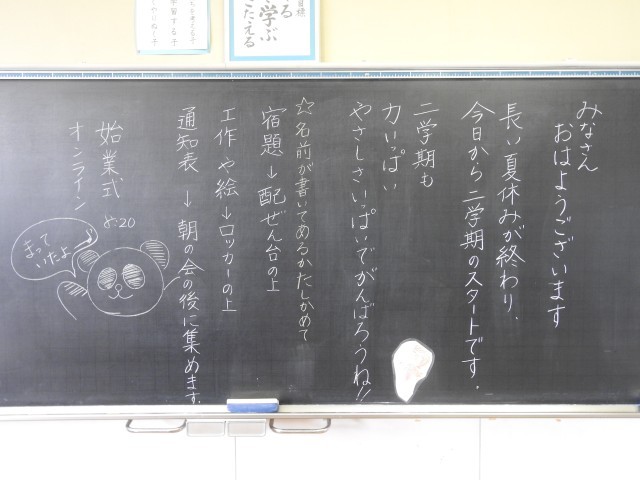 学ぶ
みなさん
おはようございます
長い夏休みが終わり、
今日から二学期のスタートです。
二学期も
力いっぱい
やさしさいっぱいでがんばろうね!!
☆名前が書いてあるかたしかめて
宿題→配ぜん台の上
工作や絵→ロッカーの上
通知表→朝の会の後に集めます。
始業式
オンライン
8:20
まって
いたよ♪